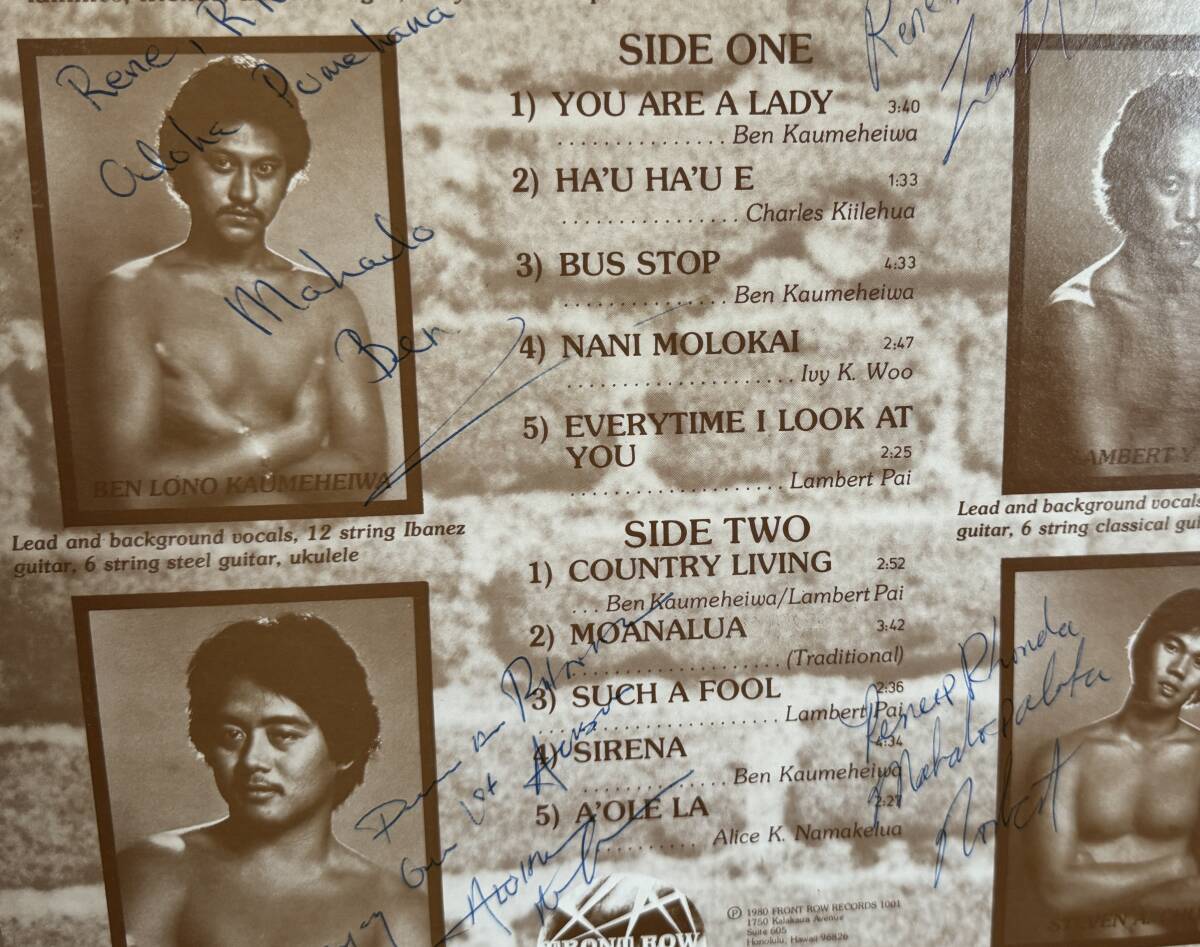 Rene,
Pumehana
Aloha
Mahalo
Ben
BEN LONO KAUMEHEIWA
Lead and background vocals, 12 string Ibanez
guitar, 6 string steel guitar, ukulele
SIDE ONE
1) YOU ARE A LADY 3:40
............... Ben Kaumeheiwa
2) HA'U HA'U E 1:33
................ Charles Kiilehua
3) BUS STOP 4:33
............... Ben Kaumeheiwa
4) NANI MOLOKAI 2:47
..................... Ivy K. Woo
5) EVERYTIME I LOOK AT
YOU 2:25
.................... Lambert Pai
SIDE TWO
1) COUNTRY LIVING 2:52
... Ben Kaumeheiwa/Lambert Pai
2) MOANALUA 3:42
.................... (Traditional)
3) SUCH A FOOL 2:36
.................... Lambert Pai
4) SIRENA 4:34
............... Ben Kaumeheiwa
5) A'OLE LA 2:27
............ Alice K. Namakelua
FRONT ROW
Ⓟ 1980 FRONT ROW RECORDS 1001
1750 Kalakaua Avenue
Suite 605
Honolulu, Hawaii 96826
Rene
LAMBERT Y
Lead and background vocals
guitar, 6 string classical gui
Rhonda
Mahalo
Norbert
1st
STEVEN